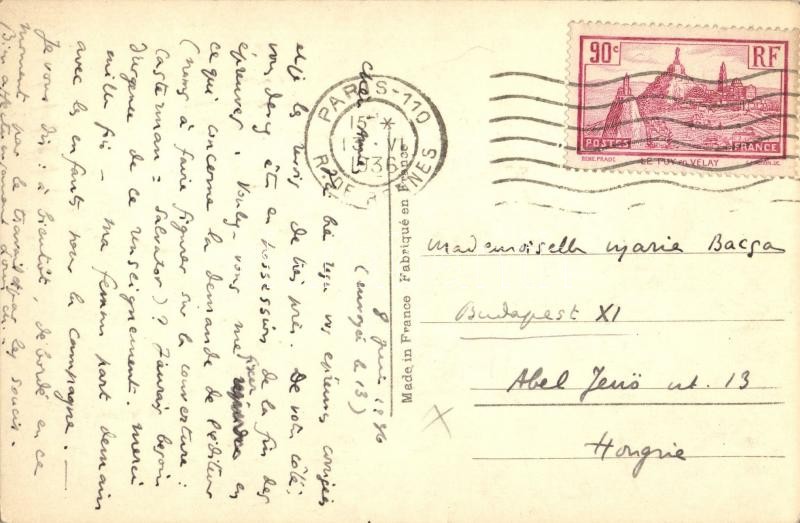 8 juin 1936
(envoyée le 13)
Chère Amie,
J'ai bien reçu vos épreuves corrigées
et je les suis de très près. De votre côté,
vous devez être en possession de la fin des
épreuves. Voulez-vous me fixer en
ce qui concerne la demande de l'éditeur
(noms à faire figurer sur la couverture :
Casterman = Salvator) ? J'aurais besoin
d'urgence de ce renseignement. Merci
mille fois — ma femme part demain
avec les enfants pour la campagne. —
Je vous dis : à bientôt, débordé en ce
moment par le travail et par les soucis.
Bien affectueusement
PARIS-110
15
VI
1936
R. DE RENNES
Made in France Fabriqué en France
90c RF
POSTES FRANCE
LE PUY EN VELAY
Mademoiselle Marie Bacsa
Budapest XI
Abel Jenö ut. 13
Hongrie